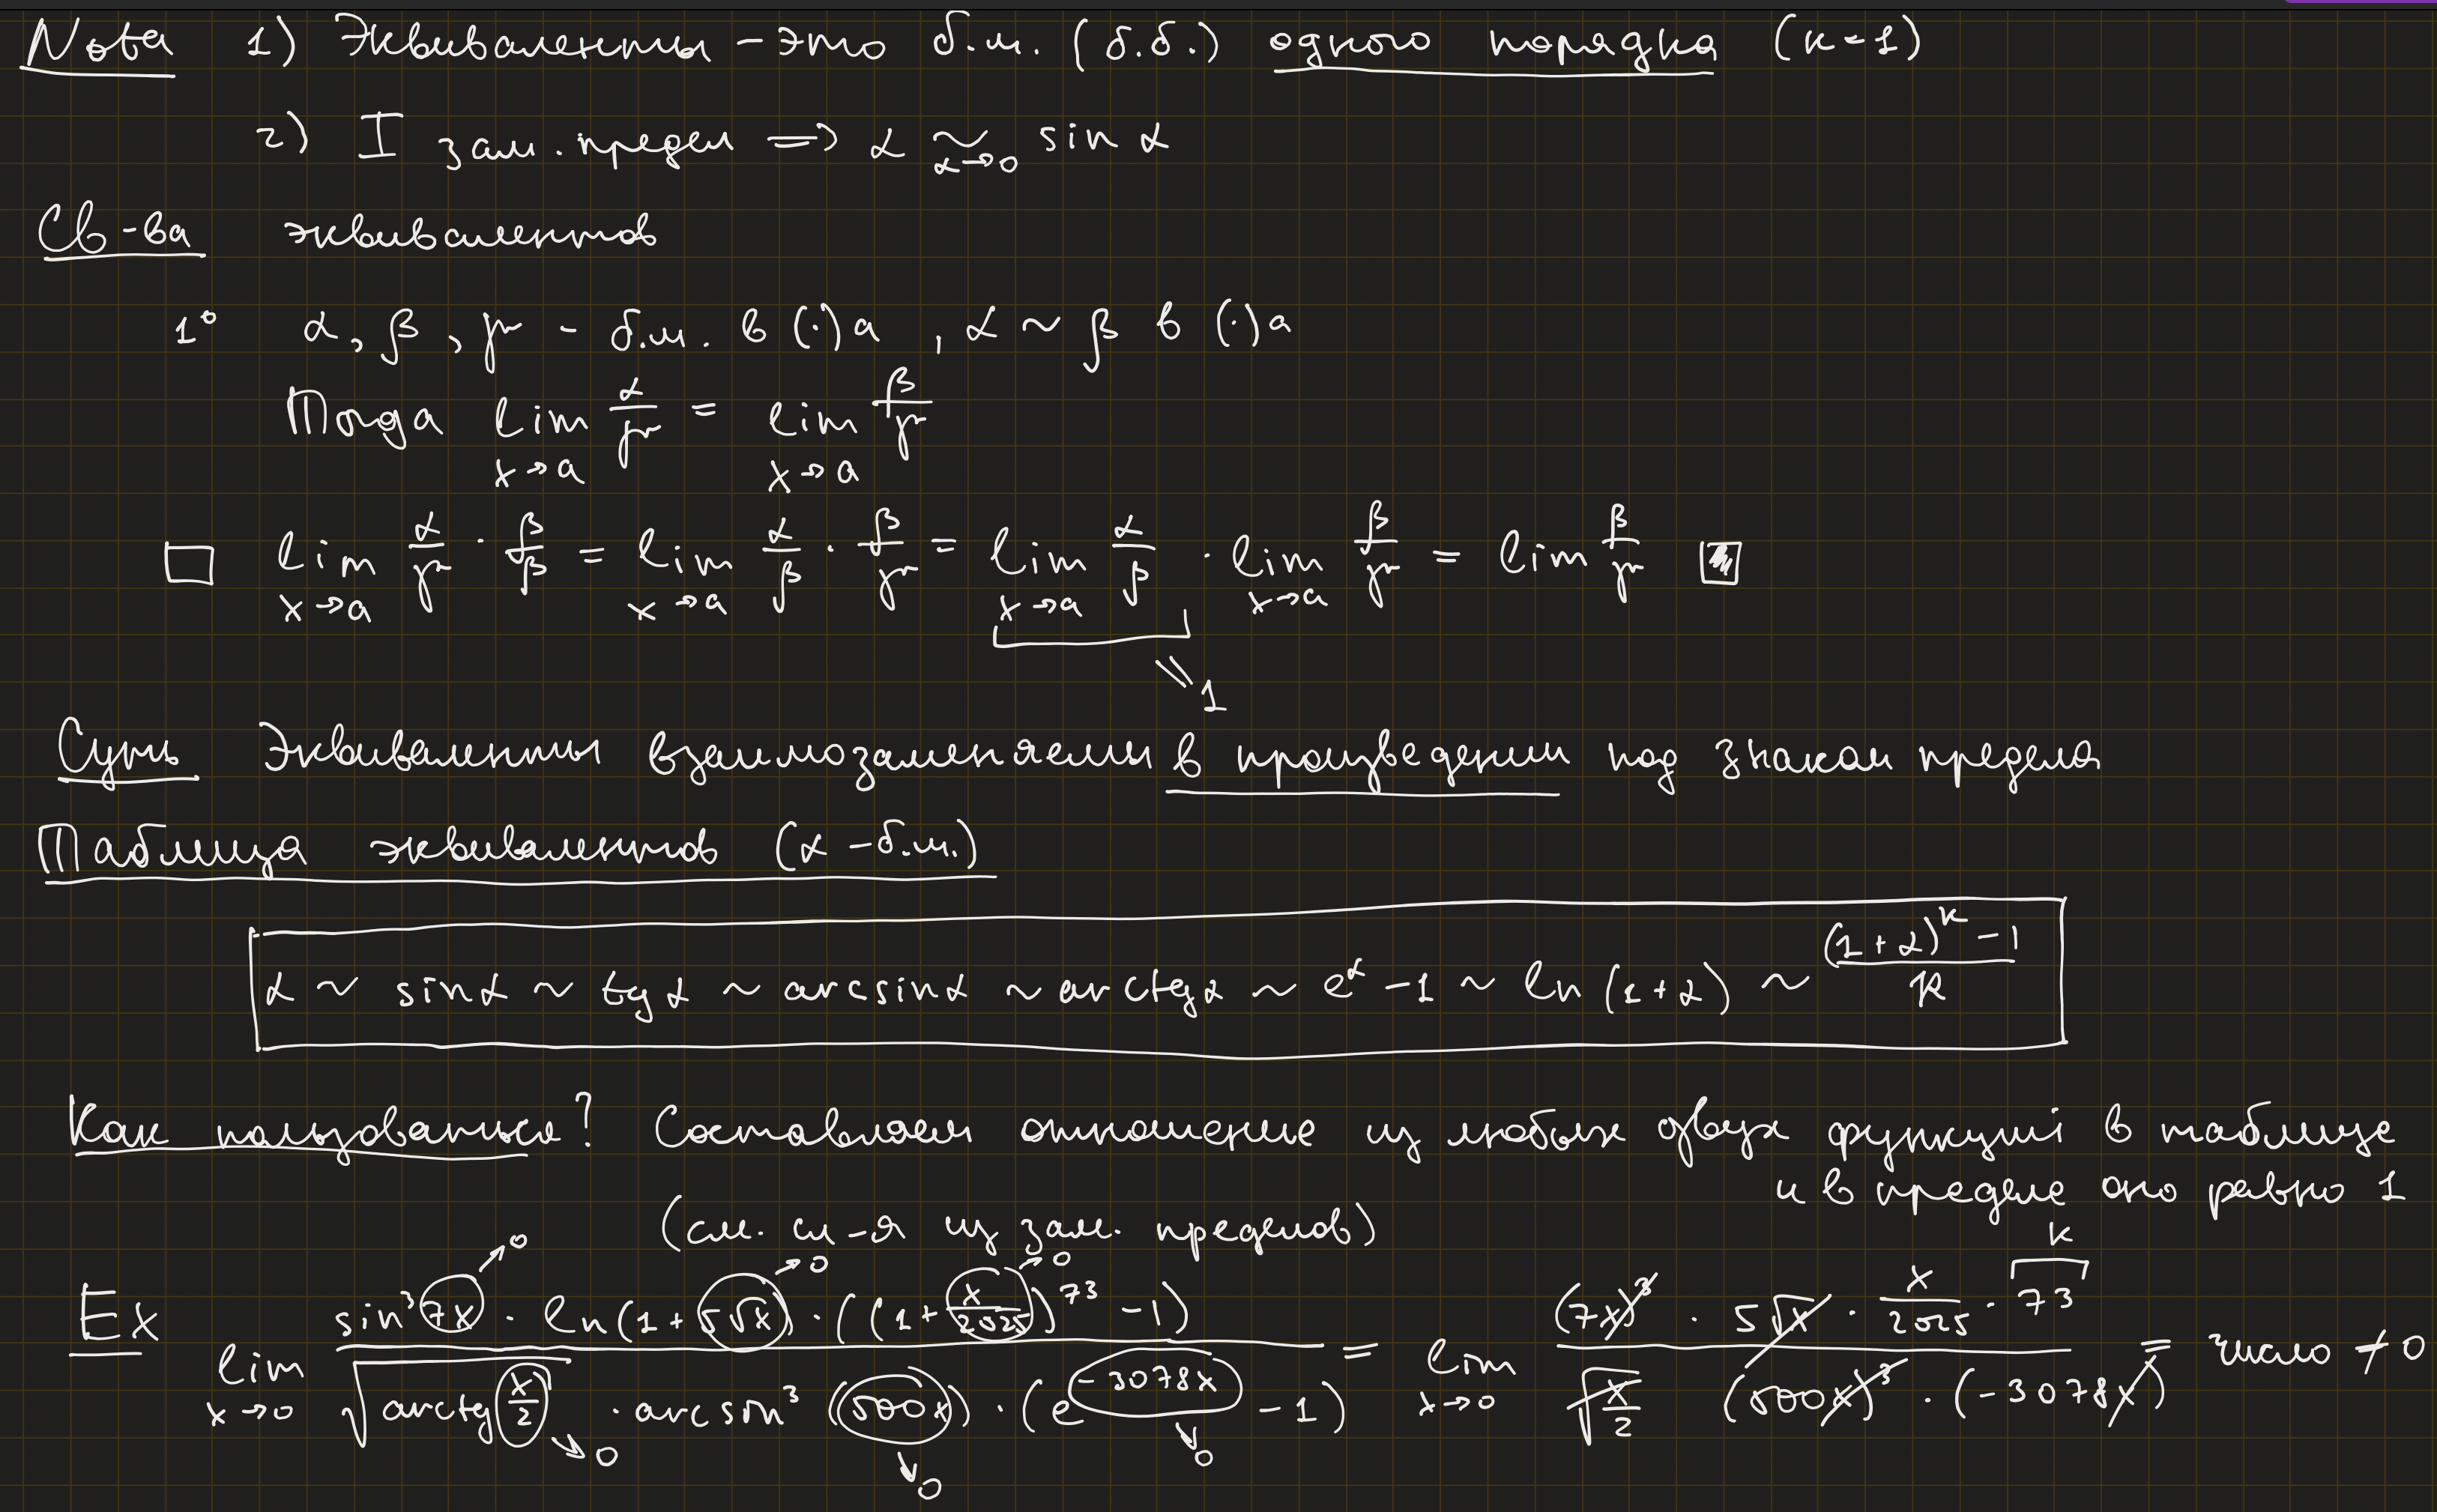 Nota 1) Эквиваленты - это б.м. (б.б.) одного порядка (k=1)
2) I зам. предел => α ~ sin α
α→0
Св-ва эквивалентов
1° α, β, γ - б.м. в (·)a , α ~ β в (·)a
Тогда lim α/γ = lim β/γ
x→a x→a
□ lim α/γ · β/β = lim α/β · β/γ = lim α/β · lim β/γ = lim β/γ ■
x→a x→a x→a x→a
= 1
Суть Эквиваленты взаимозаменяемы в произведении под знаком предела
Таблица эквивалентов (α - б.м.)
α ~ sin α ~ tg α ~ arcsin α ~ arctg α ~ e^α - 1 ~ ln (1+α) ~ ((1+α)^k - 1)/k
Как пользоваться? Составляем отношение из любых двух функций в таблице
и в пределе оно равно 1
(см. сл-я из зам. пределов)
Ex lim (sin³ 7x · ln(1+5√x) · ((1+x/2025)^73 - 1)) / (√(arctg x/2) · arcsin³ (500x) · (e^(-3078x) - 1)) = lim ((7x)³ · 5√x · x/2025 · 73) / (√(x/2) (500x)³ · (-3078x)) = число ≠ 0
x→0 x→0
→0 →0 →0 k
→0 →0 →0